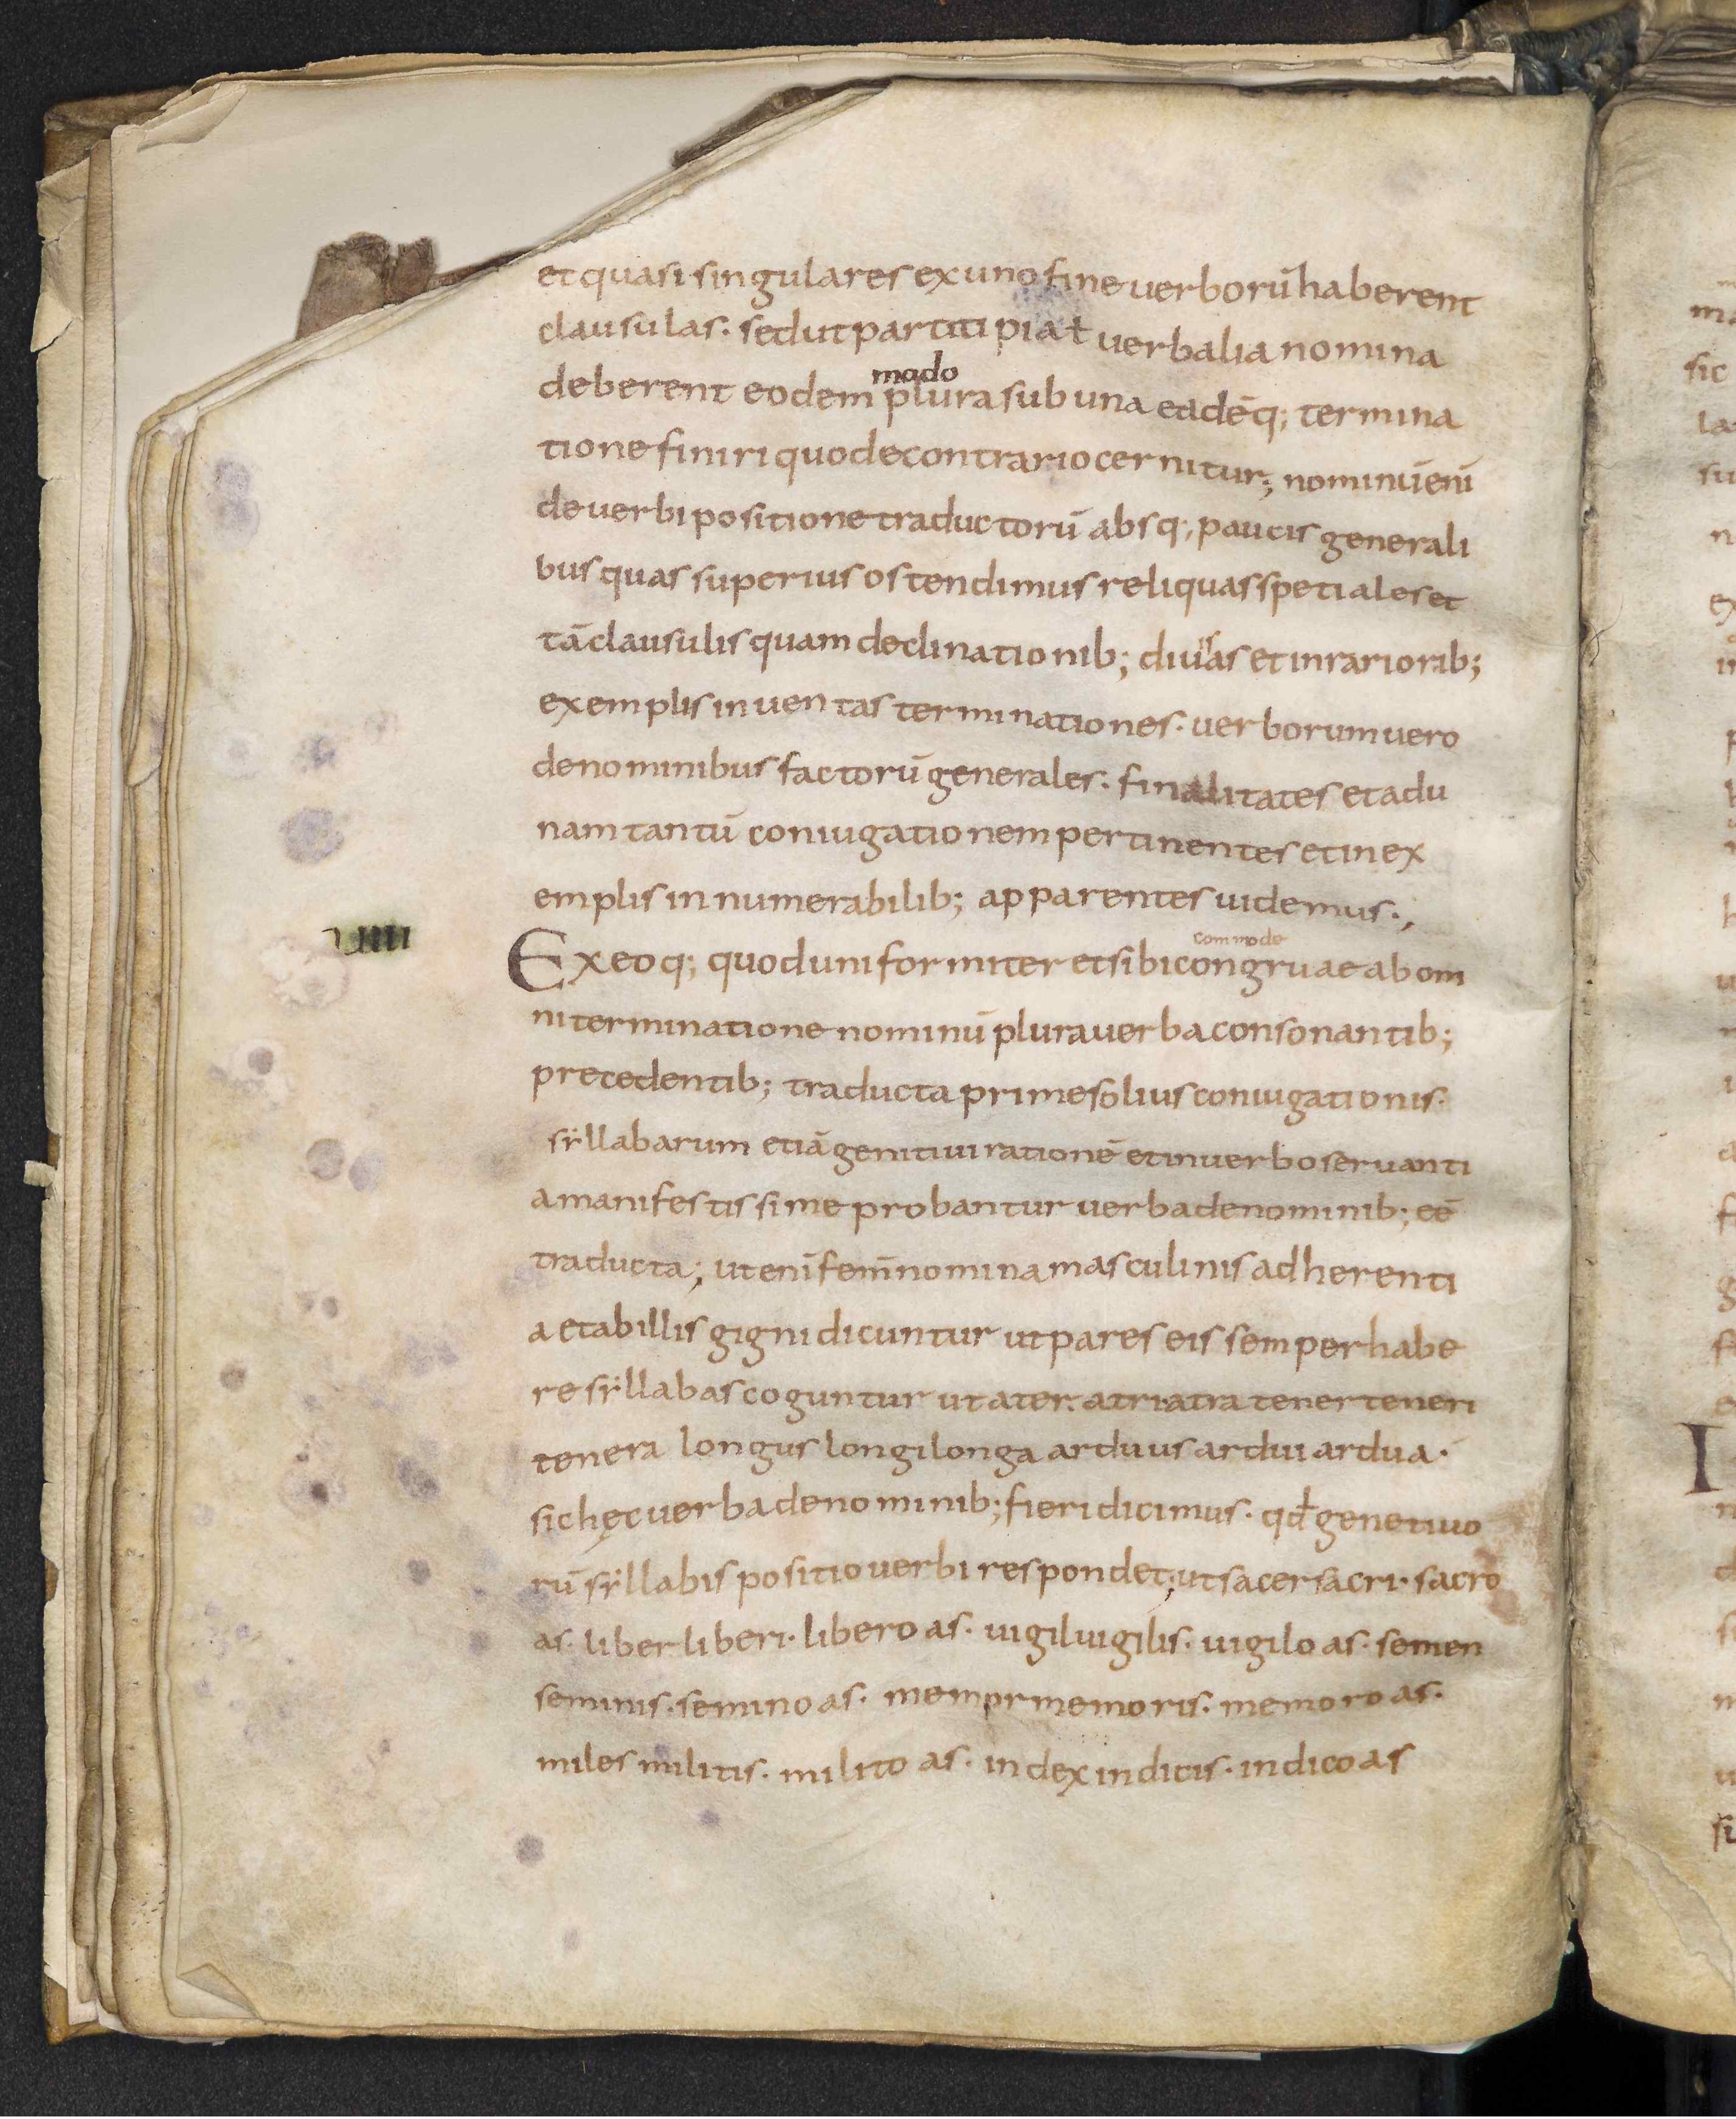 et quasi singulares ex uno fine uerborū haberent
clausulas. sed ut partitipia ł uerbalia nomina
mado
deberent eodem plura sub una eadēq; termina
tione finiri quod e contrario cernitur; nominū enī
de uerbi positione traductorū absq; paucis generali
bus quas superius ostendimus reliquas spetiales et
tā clausulis quam declinationib; diuersas et in rariorib;
exemplis inuentas terminationes. uerborum uero
de nominibus factorū generales. finalitates et ad u
nam tantū coniugationem pertinentes et in ex
emplis innumerabilib; apparentes uidemus.,
commode
uiiii
Ex eoq; quod uniformiter et sibi congruae ab om
ni terminatione nominū plura uerba consonantib;
precedentib; traducta prime solius coniugationis.
sẏllabarum etiā genitiui rationē et in uerbo seruanti
a manifestissime probantur uerba de nominib; eē
traducta; ut enī femī nomina masculinis adherenti
a et ab illis gigni dicuntur ut pares eis semper habe
re sẏllabas coguntur ut ater. atri atra tener teneri
tenera longus longi longa arduus ardui ardua.
sic hęc uerba de nominib; fieri dicimus. qđ genetiuo
rū sẏllabis positio uerbi respondet; ut sacer sacri. sacro
as. liber liberi. libero as. uigil uigilis. uigilo as. semen
seminis. semino as. memor memoris. memoro as.
miles militis. milito as. index indicis. indico as